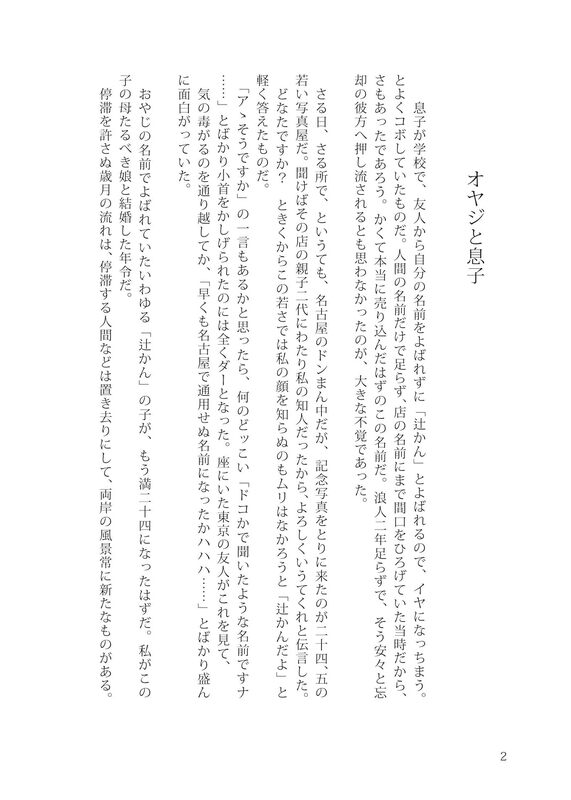 オヤジと息子
息子が学校で、友人から自分の名前をよばれずに「辻かん」とよばれるので、イヤになっちまう。
とよくコボしていたものだ。人間の名前だけで足らず、店の名前にまで間口をひろげていた当時だから、
さもあったであろう。かくて本当に売り込んだはずのこの名前だ。浪人二年足らずで、そう安々と忘
却の彼方へ押し流されるとも思わなかったのが、大きな不覚であった。
さる日、さる所で、というても、名古屋のドンまん中だが、記念写真をとりに来たのが二十四、五の
若い写真屋だ。聞けばその店の親子二代にわたり私の知人だったから、よろしくいうてくれと伝言した。
どなたですか？　ときくからこの若さでは私の顔を知らぬのもムリはなかろうと「辻かんだよ」と
軽く答えたものだ。
「アゝそうですか」の一言もあるかと思ったら、何のどッこい「ドコかで聞いたような名前ですナ
……」とばかり小首をかしげられたのには全くダーとなった。座にいた東京の友人がこれを見て、
気の毒がるのを通り越してか、「早くも名古屋で通用せぬ名前になったかハハハ……」とばかり盛ん
に面白がっていた。
おやじの名前でよばれていたいわゆる「辻かん」の子が、もう満二十四になったはずだ。私がこの
子の母たるべき娘と結婚した年令だ。
停滞を許さぬ歳月の流れは、停滞する人間などは置き去りにして、両岸の風景常に新たなものがある。
2